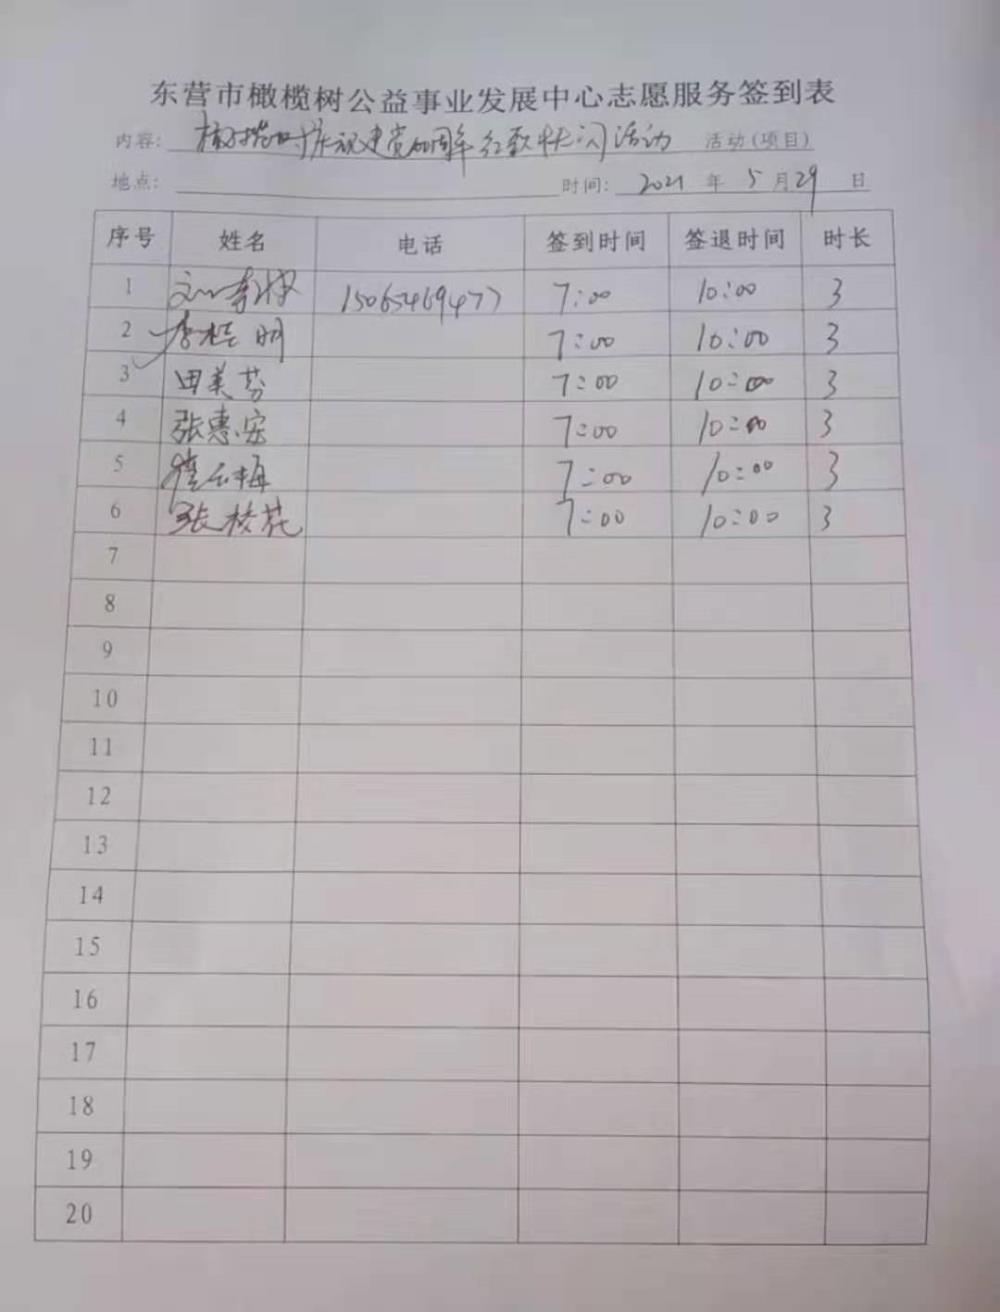 东营市橄榄树公益事业发展中心志愿服务签到表
内容: 橄榄树庆祝建党100周年红歌快闪活动 活动(项目)
地点: 时间: 2021 年 5 月 29 日
序号 姓名 电话 签到时间 签退时间 时长
1 15065469477 7:00 10:00 3
2 李桂明 7:00 10:00 3
3 田美芬 7:00 10:00 3
4 张惠宏 7:00 10:00 3
5 7:00 10:00 3
6 张枝花 7:00 10:00 3
7
8
9
10
11
12
13
14
15
16
17
18
19
20